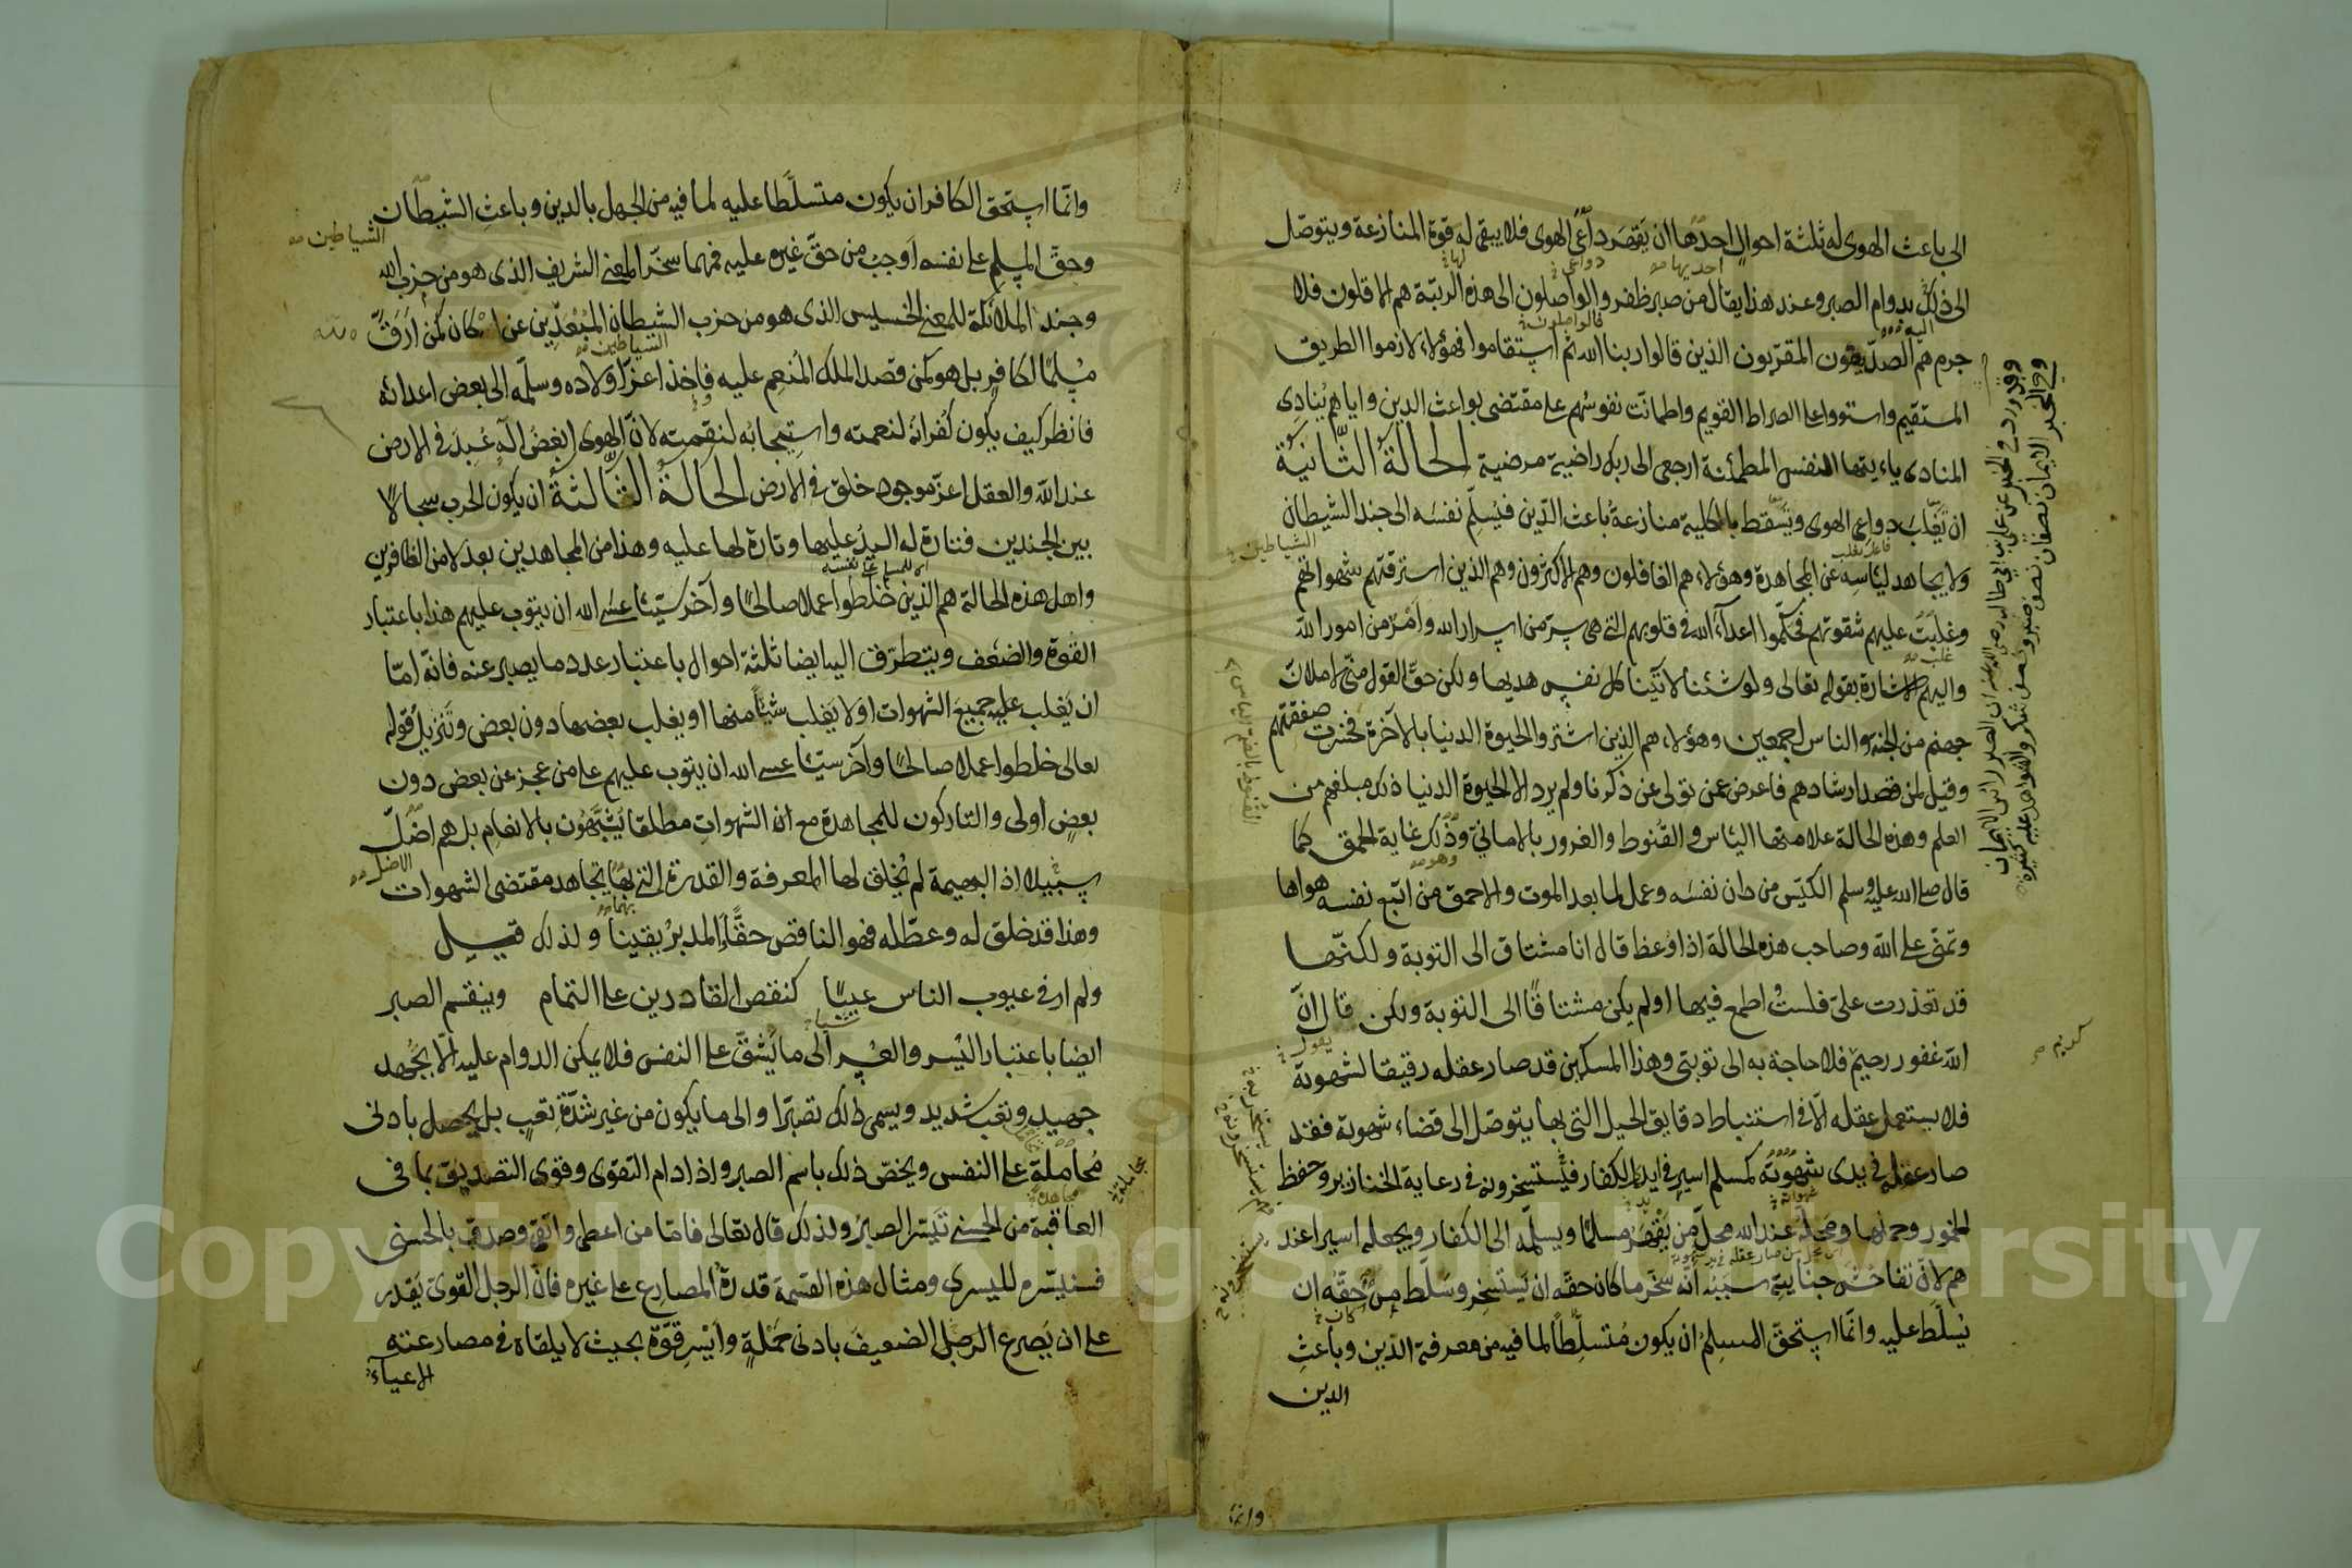 الى باعث الهوى له ثلثة احوال احدها ان يقهر داعى الهوى فلا يبقى له قوة المنازعة ويتوصل
الى ذلك بدوام الصبر وعند هذا يقال من صبر ظفر والواصلون الى هذه الرتبة هم الاقلون فلا
جرم هم الصديقون المقربون الذين قالوا ربنا الله ثم استقاموا فهؤلاء لازموا الطريق
المستقيم واستووا على الصراط القويم واطمانت نفوسهم على مقتضى بواعث الدين واياهم ينادى
المنادى ياءيتها النفس المطمئنة ارجعى الى ربك راضية مرضية الحالة الثانية
ان تغلب دواعى الهوى ويسقط بالكلية منازعة باعث الدين فيسلم نفسه الى جند الشيطان
ولا يجاهد ليئاسه عن المجاهدة وهؤلاء هم الغافلون وهم الاكثرون وهم الذين استرقتهم شهواتهم
وغلبت عليهم شقوتهم فحكموا اعداء الله فى قلوبهم التى هى سر من اسرار الله وامر من امور الله
واليهم الاشارة بقوله تعالى ولو شئنا لآتينا كل نفس هديها ولكن حق القول منى لاملان
جهنم من الجنة والناس اجمعين وهؤلاء هم الذين اشتروا الحيوة الدنيا بالآخرة فخسرت صفقتهم
وقيل لمن قصد ارشادهم فاعرض عمن تولى عن ذكرنا ولم يرد الا الحيوة الدنيا ذلك مبلغهم من
العلم وهذه الحالة علامتها الياس والقنوط والغرور بالامانى وذلك غاية الحمق كما
قال صلى الله عليه وسلم الكيس من دان نفسه وعمل لما بعد الموت والاحمق من اتبع نفسه هواها
وتمنى على الله وصاحب هذه الحالة اذا وعظ قال انا مشتاق الى التوبة ولكنها
قد تعذرت على فلست اطمع فيها او لم يكن مشتاقا الى التوبة ولكن قال ان
الله غفور رحيم فلا حاجة به الى توبتى وهذا المسكين قد صار عقله رقيقا لشهوته
فلا يستعمل عقله الا فى استنباط دقايق الحيل التى بها يتوصل الى قضاء شهوته فقد
صار عقله فى يدى شهوته كمسلم اسير فى ايدى الكفار فيستسخرونه فى رعاية الخنازير وحفظ
الخمور وحملها ومحله عند الله محل من يقهر مسلما ويسلمه الى الكفار ويجعله اسيرا عند
هم لان تفاحش جنايته سببه انه سخر ما كان حقه ان يستسخر وسلط من حقه ان
يسلط عليه وانما استحق المسلم ان يكون متسلطا لما فيه من معرفة الدين وباعث
الدين
وقد ورد فى الخبر عن على بن ابى طالب رضى الله عنه ان الصبر راس الايمان
وفى الخبر الايمان نصفان نصف صبر ونصف شكر والشواهد عليه كثيرة
وانما استحق الكافر ان يكون متسلطا عليه لما فيه من الجهل بالدين وباعث الشيطان
الشياطين
وحق المسلم على نفسه اوجب من حق غيره عليه فمهما سخر المعنى الشريف الذى هو من حزب الله
وجند الملائكة للمعنى الخسيس الذى هو من حزب الشيطان المبعدين عن الله كان كمن ارق
مسلما لكافر بل هو كمن قصد الملك المنعم عليه فاخذ اعز اولاده وسلمه الى بعض اعدائه
فانظر كيف يكون كفرانه لنعمته واستيجابه لنقمته لان الهوى ابغض آله عبد فى الارض
عند الله والعقل اعز موجود خلق فى الارض الحالة الثالثة ان يكون الحرب سجالا
بين الجندين فتارة له اليد عليها وتارة لها عليه وهذا من المجاهدين بعد لا من الظافرين
واهل هذه الحالة هم الذين خلطوا عملا صالحا وآخر سيئا عسى الله ان يتوب عليهم هذا باعتبار
القوة والضعف ويتطرق اليه ايضا ثلثة احوال باعتبار عدد ما يصبر عنه فانه اما
ان يغلب عليه جميع الشهوات اولا يغلب شيئا منها او يغلب بعضها دون بعض وتنزيل قوله
تعالى خلطوا عملا صالحا وآخر سيئا عسى الله ان يتوب عليهم على من عجز عن بعض دون
بعض اولى والتاركون للمجاهدة مع ان الشهوات مطلقا يشبهون بالانعام بل هم اضل
سبيلا اذ البهيمة لم يخلق لها المعرفة والقدرة التى بها يجاهد مقتضى الشهوات
وهذا قد خلق له وعطله فهو الناقص حقا المدبر يقينا ولذلك قيل
ولم ار فى عيوب الناس عيبا كنقص القادرين على التمام وينقسم الصبر
ايضا باعتبار اليسر والعسر الى ما يشق على النفس فلا يمكن الدوام عليه الا بجهد
جهيد وتعب شديد ويسمى ذلك تصبرا والى ما يكون من غير شدة تعب بل يحصل بادنى
محاملة على النفس ويخص ذلك باسم الصبر واذا دام التقوى وقوى التصديق بما فى
العاقبة من الحسنى تيسر الصبر ولذلك قال تعالى فاما من اعطى واتقى وصدق بالحسنى
فسنيسره لليسرى ومثال هذه القسمة قدرة المصارع على غيره فان الرجل القوى يقدر
على ان يصرع الرجل الضعيف بادنى حملة وايسر قوة بحيث لا يلقاه فى مصارعته
الاعياء
Copyright © King Saud University